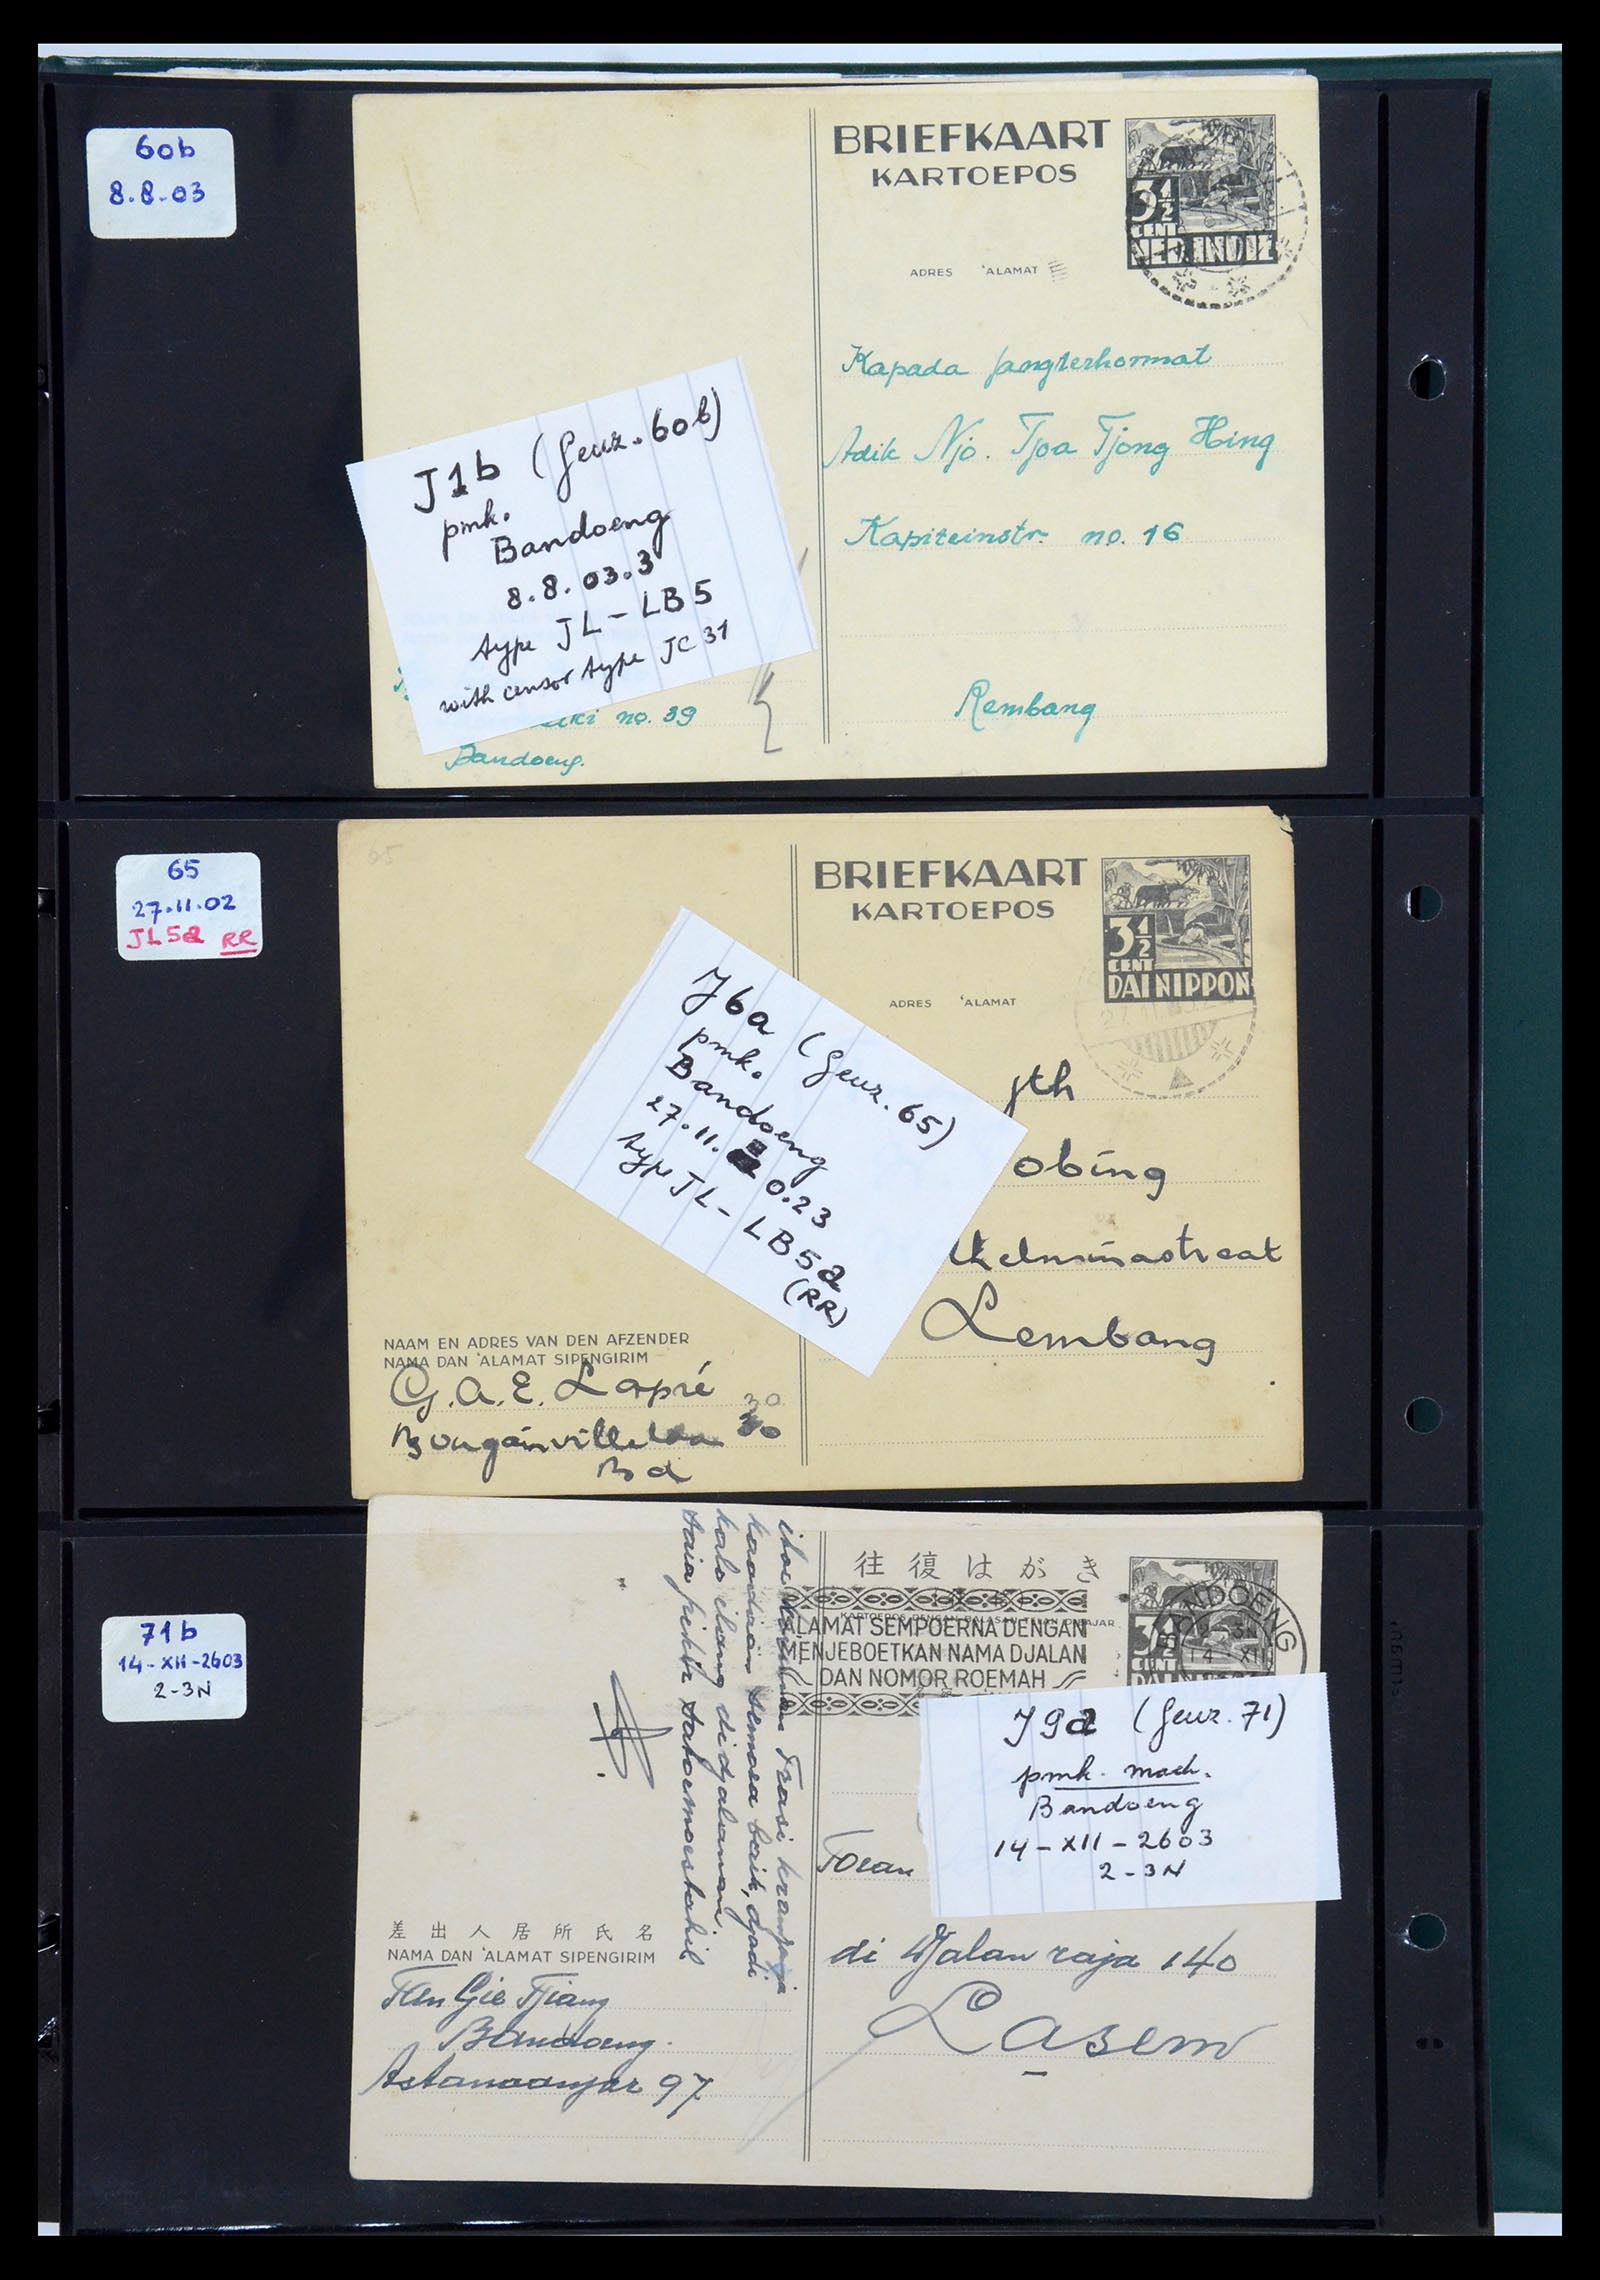 60b
8.8.03
BRIEFKAART
KARTOEPOS
3½
CENT
NED. INDIE
ADRES 'ALAMAT
Kapada jangterhormat
Adik Njo. Tjoa Tjong Hing
Kapiteinstr. no. 16
Rembang
J1b (Geuz. 60b)
pmk.
Bandoeng
8.8.03.3
type JL-LB5
with censor type JC 31
no. 39
Bandoeng.
65
27.11.02
JL5a RR
65
BRIEFKAART
KARTOEPOS
3½
CENT
DAI NIPPON
ADRES 'ALAMAT
27.11
jth
obing
Lembang
J6a (Geuz. 65)
pmk.
Bandoeng
27.11. 0.23
type JL-LB5a
(RR)
NAAM EN ADRES VAN DEN AFZENDER
NAMA DAN 'ALAMAT SIPENGIRIM
G.A.E. Lapré
30
Bougainvillelaan 30
Bd
71b
14-XII-2603
2-3N
往復はがき
KARTOEPOS DENGAN BALASAN TELAH DIBAJAR
ALAMAT SEMPOERNA DENGAN
MENJEBOETKAN NAMA DJALAN
DAN NOMOR ROEMAH
BANDOENG
2-3N
14-XII
3½
J9a (Geuz. 71)
pmk. mach.
Bandoeng
14-XII-2603
2-3N
Toean
di Djalan raja 140
Lasem
itoe Trasi
semoea baik, djadi
kalo ilang di djalanan.
saia
差出人居所氏名
NAMA DAN 'ALAMAT SIPENGIRIM
Tan Gie Tjiang
Bandoeng.
Astanaanjar 97